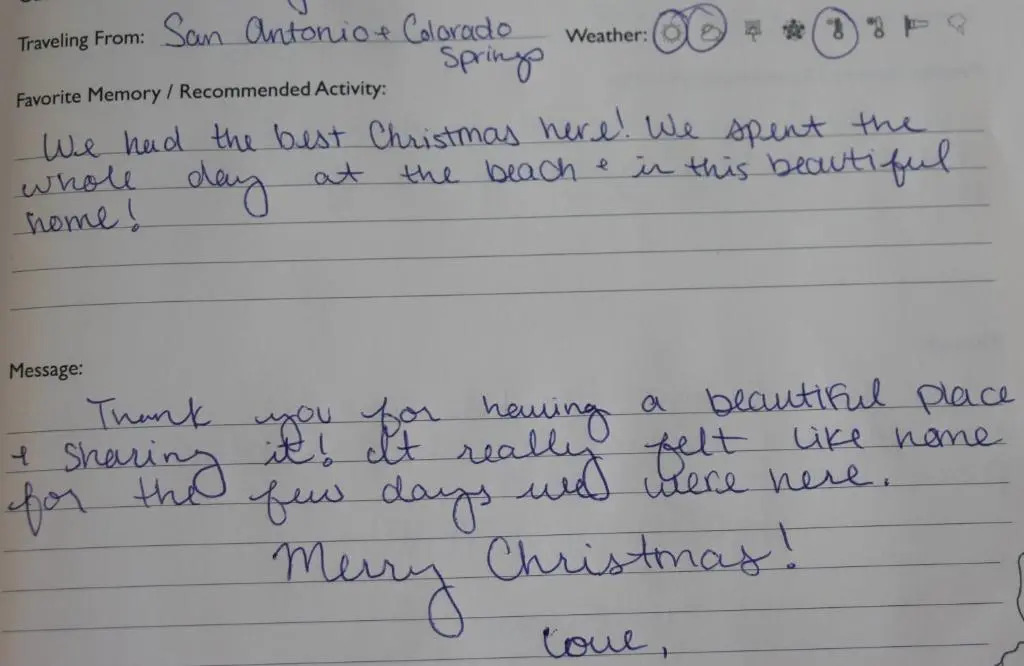 Traveling From: San Antonio + Colorado Weather:
Springs
Favorite Memory / Recommended Activity:
We had the best Christmas here! We spent the
whole day at the beach + in this beautiful
home!
Message:
Thank you for having a beautiful place
+ sharing it! It really felt like home
for the few days we were here.
Merry Christmas!
Love,